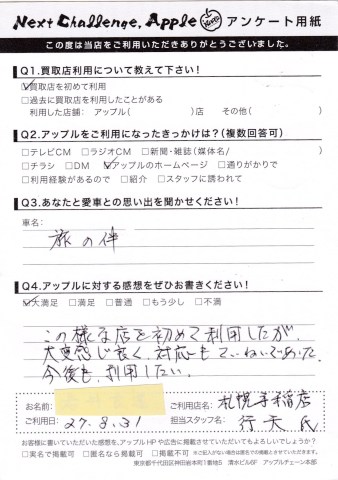 Next Challenge. Apple アンケート用紙
この度は当店をご利用いただきありがとうございました。
Q1.買取店利用について教えて下さい!
☑買取店を初めて利用
□過去に買取店を利用したことがある
利用した店舗： アップル( )店 その他( )
Q2.アップルをご利用になったきっかけは?(複数回答可)
□テレビCM □ラジオCM □新聞・雑誌(媒体名/ )
□チラシ □DM ☑アップルのホームページ □通りがかりで
□利用経験があるので □紹介 □スタッフに誘われて
Q3.あなたと愛車との思い出を聞かせください!
車名：
旅の伴
Q4.アップルに対する感想をぜひお書きください!
☑大満足 □満足 □普通 □もう少し □不満
この様な店を初めて利用したが、
大変感じ良く、対応もていねいであった。
今後も、利用したい。
お名前：
ご利用店名： 札幌手稲店
ご利用日： 27.8.31
担当スタッフ名： 行天氏
お客様に書いていただいた感想を、アップルHPや広告に掲載させていただいてもよろしいでしょうか?
□実名で掲載可 □匿名なら掲載可 □掲載不可 ※ご記入がない場合は匿名での掲載とさせていただきます。
東京都千代田区神田岩本町1番地5 清水ビル6F アップルチェーン本部